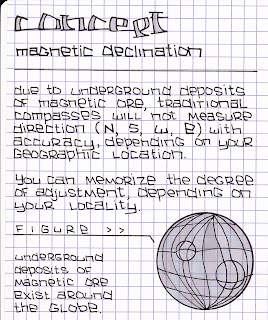 CONCEPT
MAGNETIC DECLINATION
DUE TO UNDERGROUND DEPOSITS
OF MAGNETIC ORE, TRADITIONAL
COMPASSES WILL NOT MEASURE
DIRECTION (N, S, W, E) WITH
ACCURACY, DEPENDING ON YOUR
GEOGRAPHIC LOCATION.
YOU CAN MEMORIZE THE DEGREE
OF ADJUSTMENT, DEPENDING ON
YOUR LOCALITY.
FIGURE >>
UNDERGROUND
DEPOSITS OF
MAGNETIC ORE
EXIST AROUND
THE GLOBE.